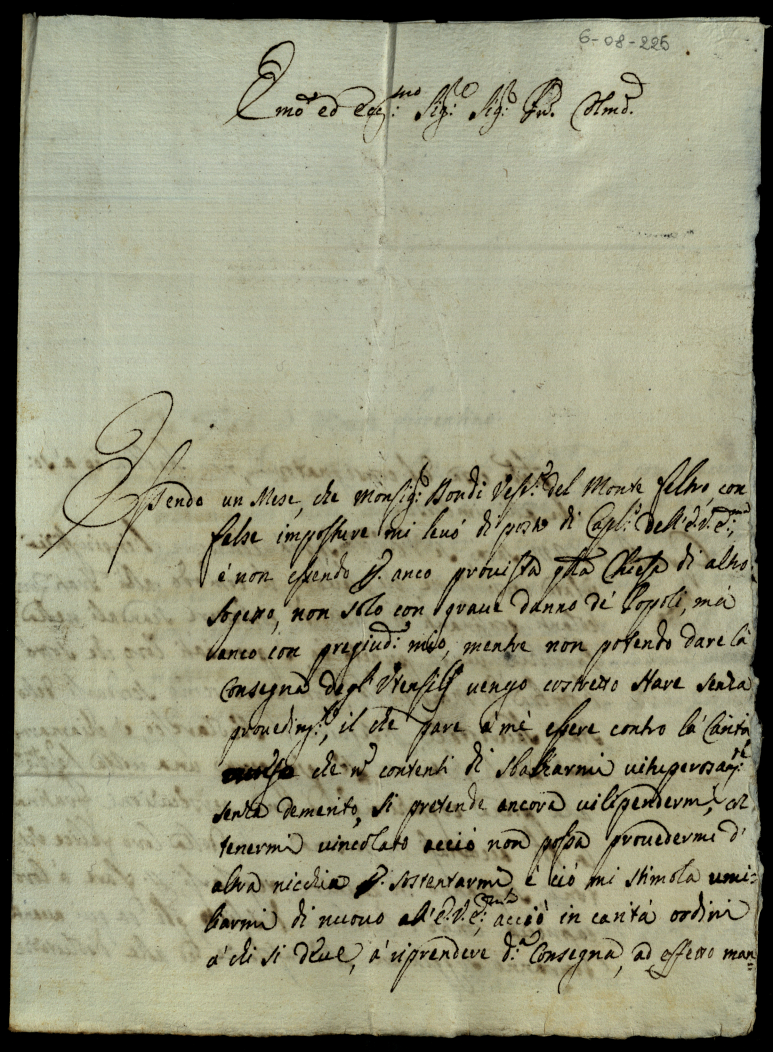 6-08-226
Emo. ed Ecc:mo Sig:e Sig: Pn. Olmo.
Essendo un Mese, che Monsig: Bondi Vesc:o del Monte feltro, con
false imposture mi levó di posto di Capl: dell'E.V.E:ma,
é non essendo p. anco provista qta Chiesa di altro
sogetto, non solo con grave danno de' Popoli, má
anco con pregiud: mio, mentre non potendo dare lá
Consegna degl' Utensilj vengo costretto stare senza
provedim:to, il che pare á mé essere contro lá Caritá
che n. contenti di sbalzarmi vituperosam:te
senza demerito, si pretende ancora vilipendermi,
tenermi vincolato acció non possa provedermi d'
altra nicchia p. sostentarmi, é ció mi stimola umi-
liarmi di nuovo all'E.V.E:ma, acció in caritá ordini
á chi si deve, á riprendere d:a Consegna, ad effetto man=